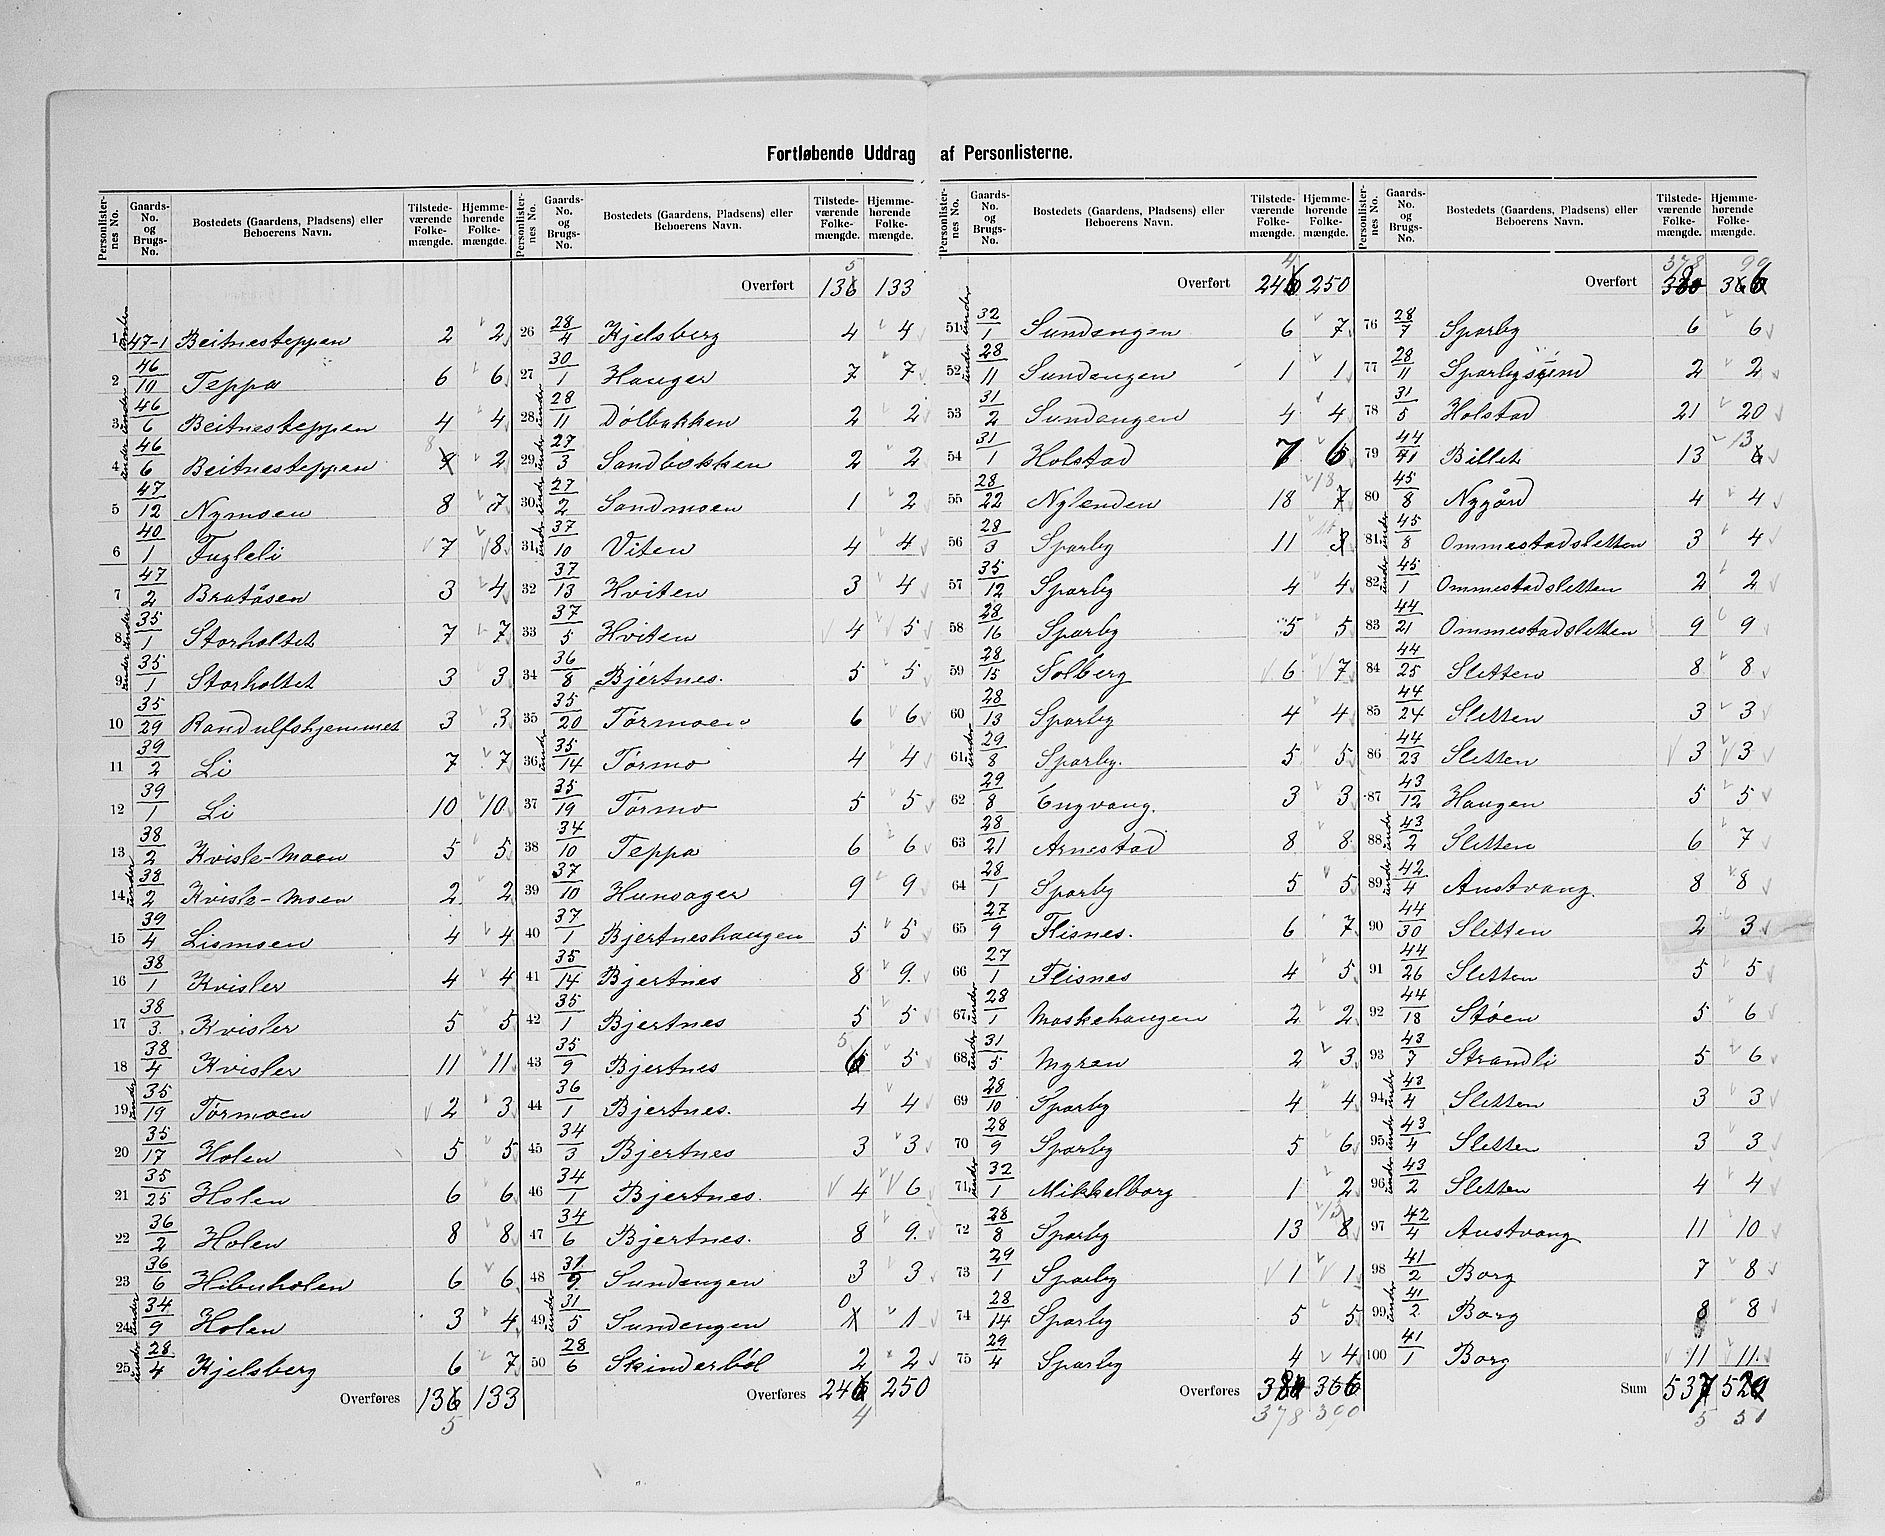 Fortløbende Uddrag af Personlisterne.
Personlisternes No. | Gaards-No. og Brugs-No. | Bostedets (Gaardens, Pladsens) eller Beboerens Navn. | Tilstedeværende Folkemængde. | Hjemmehørende Folkemængde.
1 under 47-1 Beitnesteppen 2 2
2 46/10 Teppa 6 6
3 under 46/6 Beitnesteppen 4 4
4 under 46/6 Beitnesteppen 8 2
5 47/12 Nymoen 8 7
6 40/1 Fugleli 7 8
7 47/2 Bratåsen 3 4
8 under 35/1 Storholtet 7 7
9 under 35/1 Storholtet 3 3
10 35/29 Randulfshjemmet 3 3
11 39/2 Li 7 7
12 39/1 Li 10 10
13 38/2 Kvisle-Moen 5 5
14 under 38/2 Kvisle-Moen 2 2
15 39/4 Lismoen 4 4
16 38/1 Kvisler 4 4
17 38/3 Kvisler 5 5
18 38/4 Kvisler 11 11
19 under 35/19 Tørmoen 2 3
20 35/17 Holen 5 5
21 35/25 Holen 6 6
22 36/2 Holen 8 8
23 36/6 Hibuholen 6 6
24 under 34/9 Holen 3 4
25 under 28/4 Kjelsberg 6 7
Overføres 136 133
5
Personlisternes No. | Gaards-No. og Brugs-No. | Bostedets (Gaardens, Pladsens) eller Beboerens Navn. | Tilstedeværende Folkemængde. | Hjemmehørende Folkemængde.
5
Overført 136 133
26 28/4 Kjelsberg 4 4
27 30/1 Hauger 7 7
28 under 28/11 Dølbakken 2 2
29 under 27/3 Sandbakken 2 2
30 under 27/2 Sandmoen 1 2
31 under 37/10 Viten 4 4
32 37/13 Hviten 3 4
33 37/5 Hviten 4 5
34 36/8 Bjertnes. 5 5
35 35/20 Tørmoen 6 6
36 under 35/14 Tørmo 4 4
37 35/19 Tørmo 5 5
38 34/10 Teppa 6 6
39 37/10 Hunsager 9 9
40 37/1 Bjertneshaugen 5 5
41 35/14 Bjertnes 8 9.
42 35/1 Bjertnes 5 5
43 35/9 Bjertnes 6 5
44 36/1 Bjertnes. 4 4
45 34/3 Bjertnes 3 3
46 34/1 Bjertnes. 4 6
47 34/6 Bjertnes. 8 9.
48 31/9 Sundengen 3 3
49 under 31/5 Sundengen 0 1
50 28/6 Skinderbøl 2 2
Overføres 246 250
4
Personlisternes No. | Gaards-No. og Brugs-No. | Bostedets (Gaardens, Pladsens) eller Beboerens Navn. | Tilstedeværende Folkemængde. | Hjemmehørende Folkemængde.
4
Overført 246 250
51 under 32/1 Sundengen 6 7
52 under 28/11 Sundengen 1 1
53 31/2 Sundengen 4 4
54 31/1 Holstad 7 6
55 28/22 Nylenden 18 18 7
56 28/3 Sparby 11 11 3
57 35/12 Sparby 4 4
58 28/16 Sparby 5 5
59 28/15 Solberg 6 7
60 28/13 Sparby 4 4
61 under 29/8 Sparby. 5 5
62 29/8 Engvang. 3 3
63 28/21 Arnestad 8 8
64 28/1 Sparby 5 5
65 27/9 Flisnes. 6 7
66 27/1 Flisnes 4 5
67 under 28/1 Maskehaugen 2 2
68 under 31/5 Myran 2 3
69 28/10 Sparby 4 4
70 28/9 Sparby 5 6
71 under 32/1 Mikkelborg 1 2
72 28/8 Sparby 13 13 8
73 29/1 Sparby 1 1
74 28/14 Sparby 5 5
75 29/4 Sparby 4 4
Overføres 380 366
378 390
Personlisternes No. | Gaards-No. og Brugs-No. | Bostedets (Gaardens, Pladsens) eller Beboerens Navn. | Tilstedeværende Folkemængde. | Hjemmehørende Folkemængde.
378 90
Overført 380 366
76 28/7 Sparby 6 6
77 28/11 Sparbyseiend 2 2
78 31/5 Holstad 21 20
79 44/71 Billet 13 13 6
80 45/8 Nygård 4 4
81 under 45/8 Ommestadsletten 3 4
82 under 45/1 Ommestadsletten 2 2
83 44/21 Ommestadsletten 9 9
84 44/25 Sletten 8 8
85 44/24 Sletten 3 3
86 44/23 Sletten 3 3
87 43/12 Haugen 5 5
88 under 43/2 Sletten 6 7
89 under 42/4 Austvang. 8 8
90 44/30 Sletten 2 3
91 44/26 Sletten 5 5
92 44/18 Støen 5 6
93 43/7 Strandli 5 6
94 under 43/4 Sletten 3 3
95 under 43/4 Sletten 3 3
96 under 43/2 Sletten 4 4
97 42/4 Austvang 11 10
98 41/2 Borg 7 8
99 under 41/2 Borg 8 8
100 41/1 Borg 11 11.
Sum 537 520
5 51